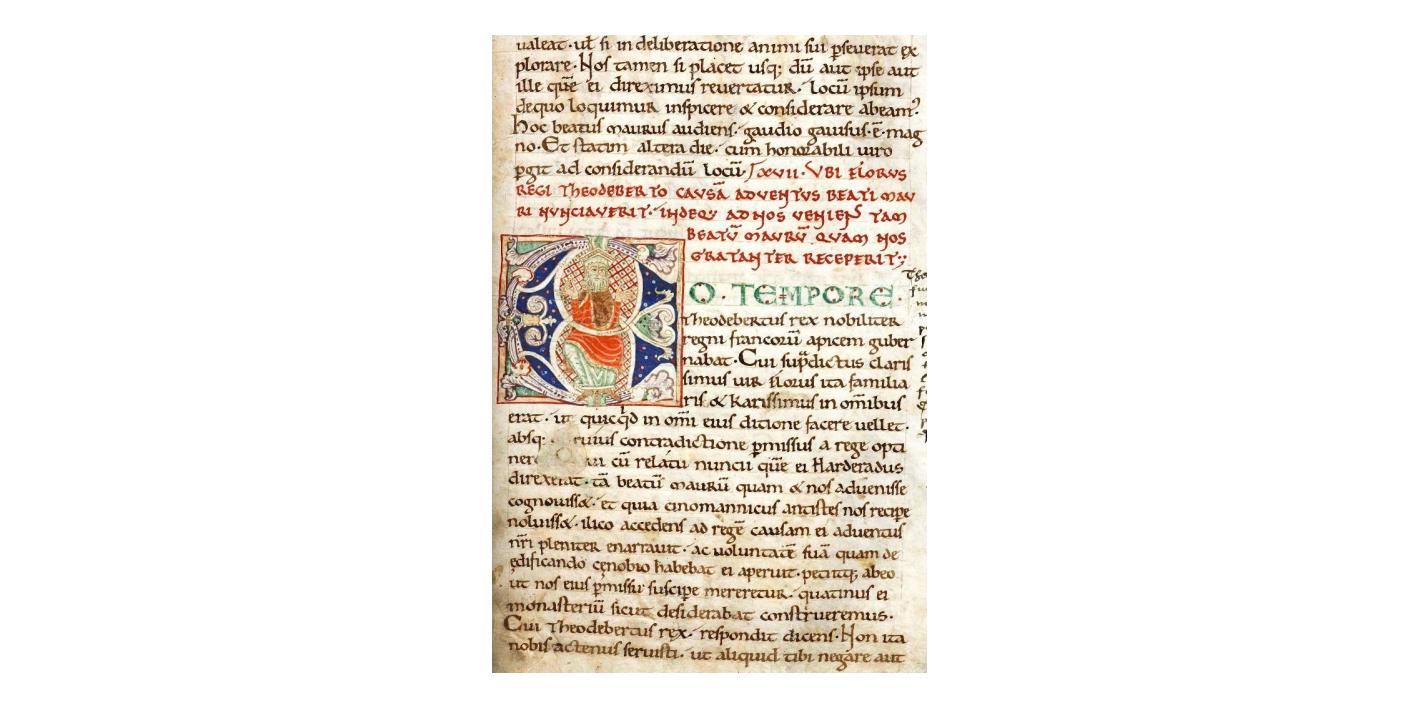 ualeat · ut̄ si in deliberatione animi sui ꝑseuerat ex
plorare · Nos tamen si placet usq; dū aut ipse aut
ille quē ei direximus reuertatur · locū ipsum
dequo loquimur inspicere & considerare abeam᷒
Hoc beatus maurus audiens · gaudio gauisus · ē · mag
no · Et statim altera die · cum honorabili uiro
ꝑgit ad considerandū locū · XVII · VBI FLORVS
REGI THEODEBERTO CAVSĀ ADVENTVS BEATI MAV
RI NVNCIAVERIT · INDEQ; AD NOS VENIENS TAM
BEATŪ MAVRŪ QVAM NOS
GRATANTER RECEPERIT;
EO · TEMPORE ·
Theodebertus rex nobiliter
regni francorū apicem guber
nabat · Cui sup̄dictus claris
simus uir florus ita familia
ris & karissimus in om̄ibus
erat · ut quicq̄d in om̄i eius ditione facere uellet ·
absq; uius contradictione ꝑmissus a rege opti
ner ui cū relatu nuncii quē ei Harderadus
direxerat · tā beatū maurū quam & nos aduenisse
cognouiss& · et quia cinomannicus antistes nos recipe
noluiss& · ilico accedens ad regē causam ei aduentus
nr̄i pleniter enarrauit · ac uoluntatē suā quam de
ędificando cęnobio habebat ei aperuit · petiitq; ab eo
ut nos eius ꝑmissu suscipe mereretur · quatinus ei
monasteriū sicut desiderabat construeremus ·
Cui Theodebertus rex · respondit dicens · Non ita
nobis actenus seruisti · ut aliquid tibi negare aut